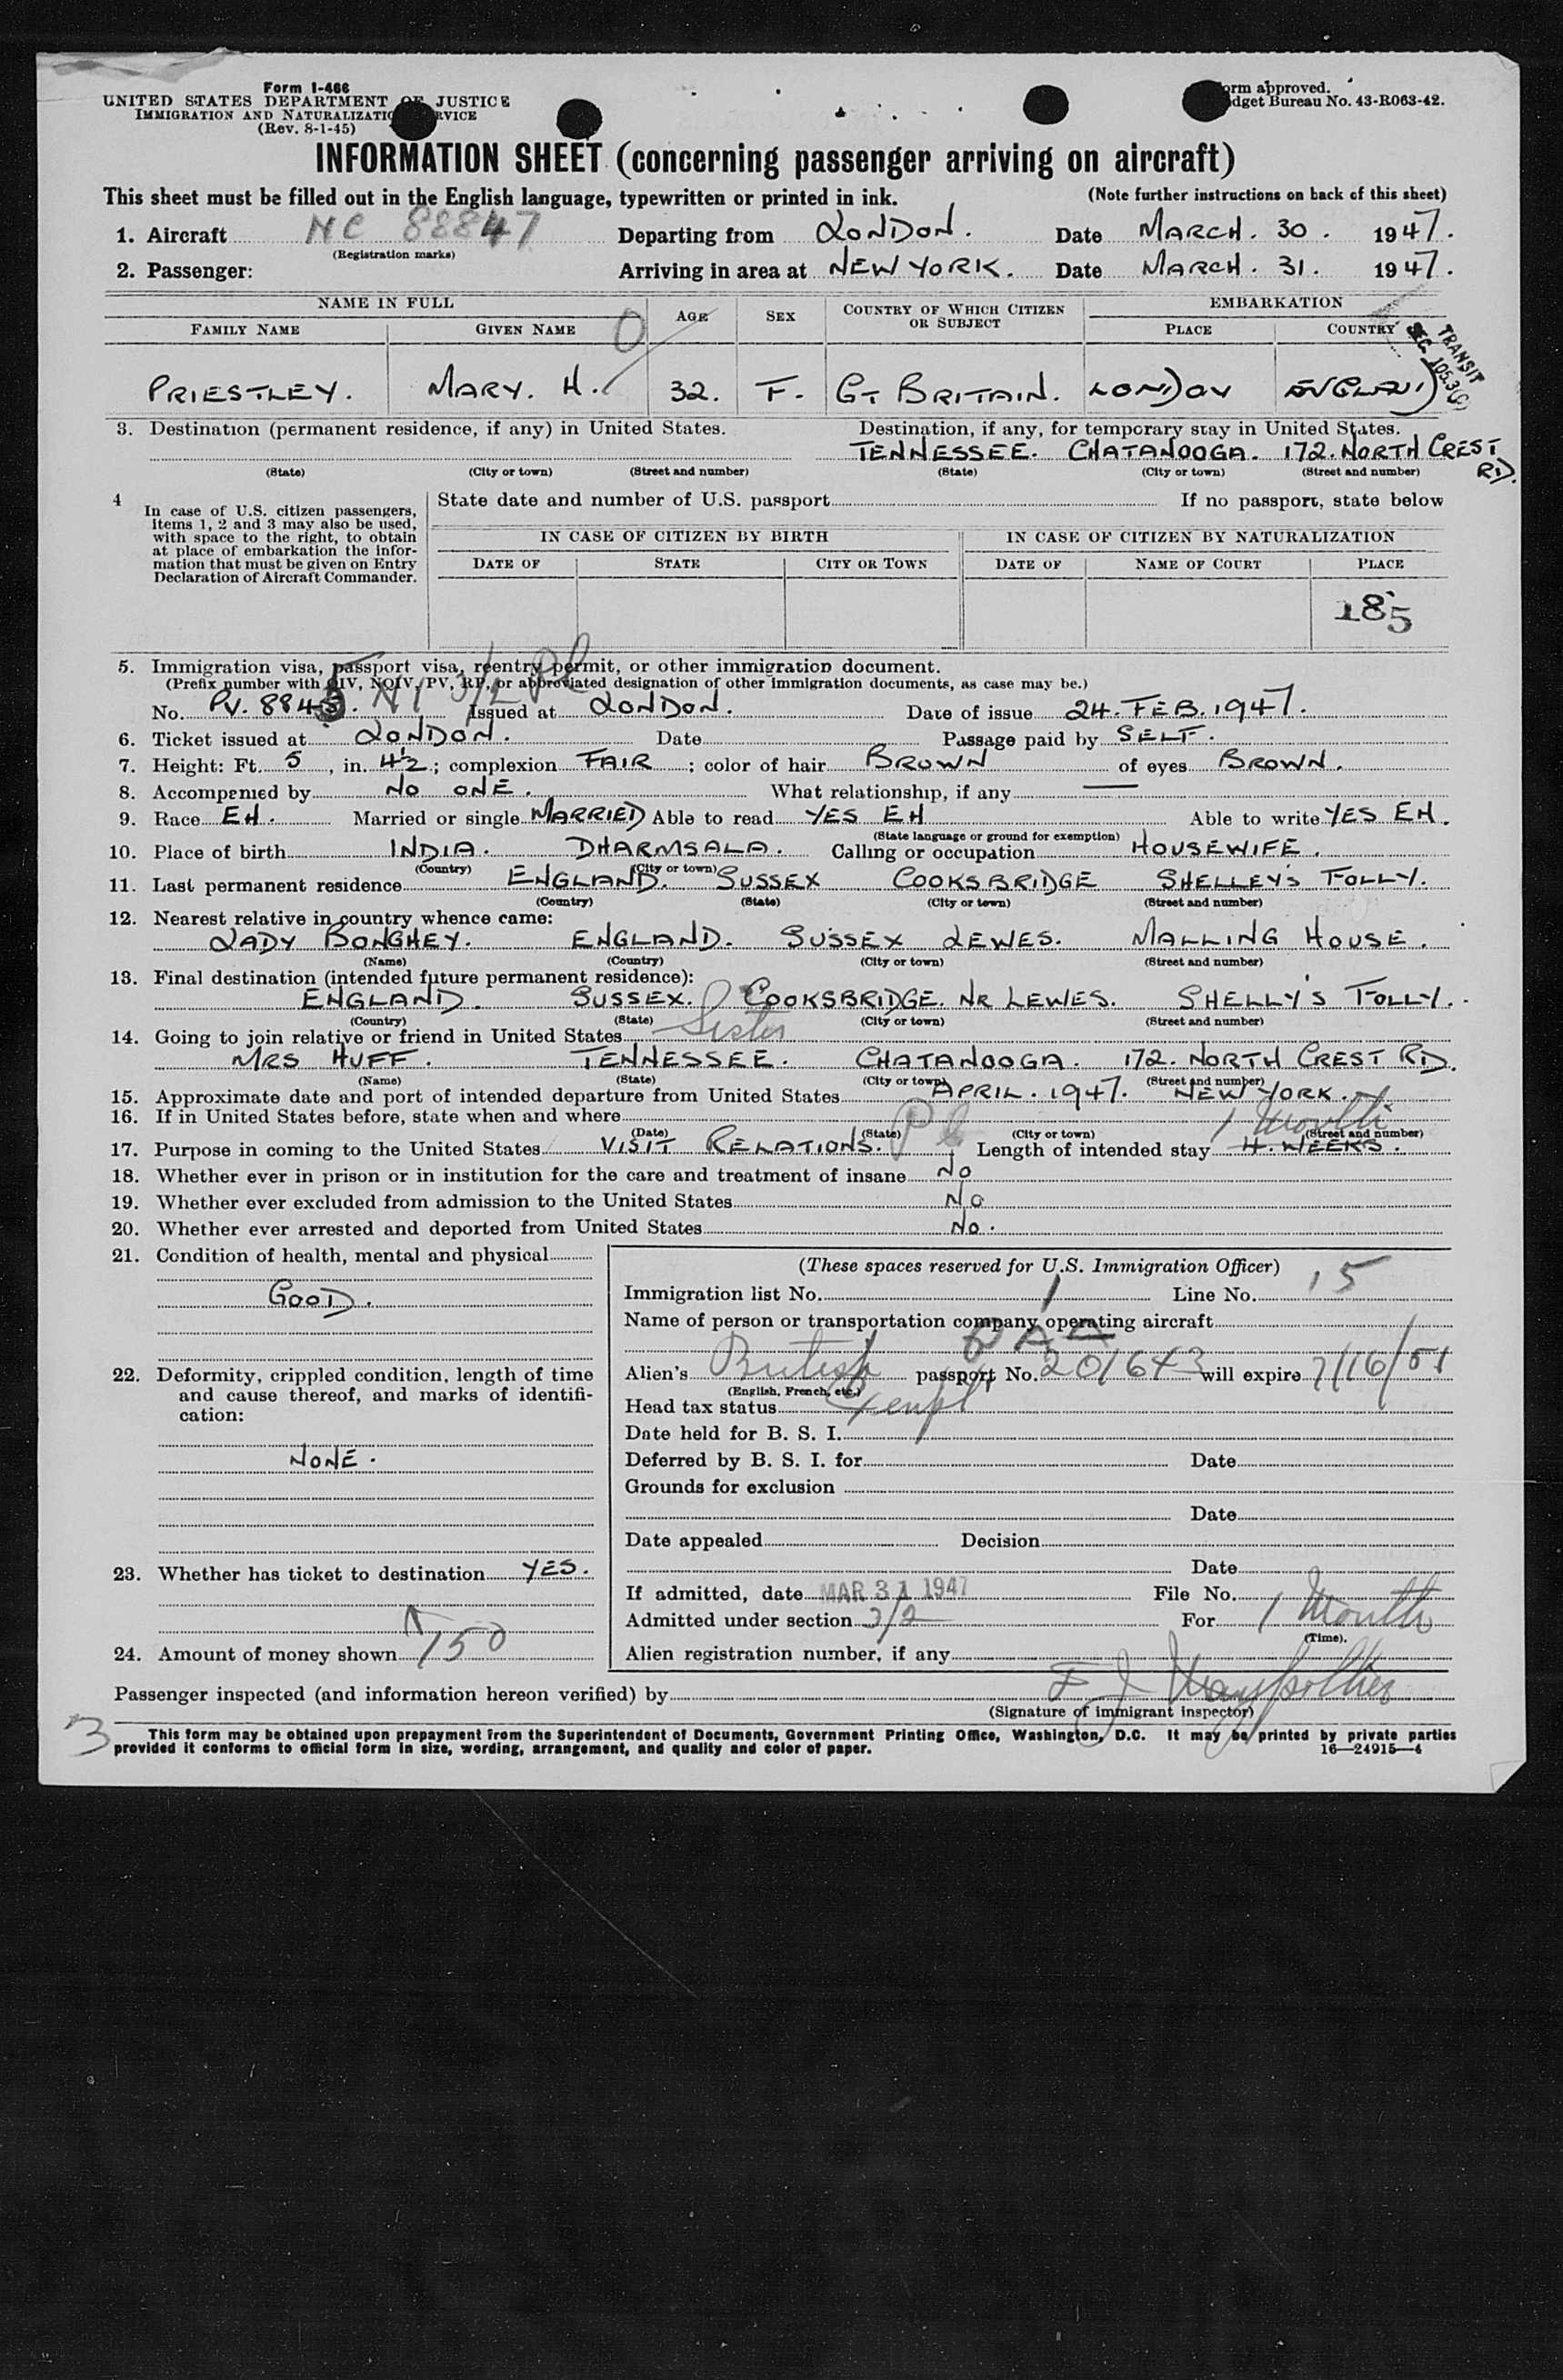 Form I-466
UNITED STATES DEPARTMENT OF JUSTICE
IMMIGRATION AND NATURALIZATION SERVICE
(Rev. 8-1-45)
orm approved.
dget Bureau No. 43-R063-42.
INFORMATION SHEET (concerning passenger arriving on aircraft)
This sheet must be filled out in the English language, typewritten or printed in ink. (Note further instructions on back of this sheet)
1. Aircraft NC 88847 Departing from LONDON. Date MARCH. 30. 1947.
(Registration marks)
2. Passenger: Arriving in area at NEW YORK. Date MARCH. 31. 1947.
NAME IN FULL AGE SEX COUNTRY OF WHICH CITIZEN OR SUBJECT EMBARKATION
FAMILY NAME GIVEN NAME PLACE COUNTRY
TRANSIT
SEC. 105.3(c)
PRIESTLEY. MARY. H. 32. F. GT BRITAIN. LONDON ENGLAND
3. Destination (permanent residence, if any) in United States. Destination, if any, for temporary stay in United States.
TENNESSEE. CHATANOOGA. 172. NORTH CREST RD.
(State) (City or town) (Street and number) (State) (City or town) (Street and number)
4 In case of U.S. citizen passengers, items 1, 2 and 3 may also be used, with space to the right, to obtain at place of embarkation the information that must be given on Entry Declaration of Aircraft Commander.
State date and number of U.S. passport If no passport, state below
IN CASE OF CITIZEN BY BIRTH IN CASE OF CITIZEN BY NATURALIZATION
DATE OF STATE CITY OR TOWN DATE OF NAME OF COURT PLACE
185
5. Immigration visa, passport visa, reentry permit, or other immigration document.
(Prefix number with QIV, NQIV, PV, RP, or abbreviated designation of other immigration documents, as case may be.)
No. PV. 8845. 3/2 Issued at LONDON. Date of issue 24. FEB. 1947.
6. Ticket issued at LONDON. Date Passage paid by SELF.
7. Height: Ft. 5, in. 4½; complexion FAIR; color of hair BROWN of eyes BROWN.
8. Accompenied by NO ONE. What relationship, if any —
9. Race EH. Married or single MARRIED Able to read YES EH Able to write YES EH.
(State language or ground for exemption)
10. Place of birth INDIA. DHARMSALA. Calling or occupation HOUSEWIFE.
(Country) (City or town)
11. Last permanent residence ENGLAND. SUSSEX COOKSBRIDGE SHELLEY'S FOLLY.
(Country) (State) (City or town) (Street and number)
12. Nearest relative in country whence came:
LADY BONGHEY. ENGLAND. SUSSEX LEWES. MALLING HOUSE.
(Name) (Country) (City or town) (Street and number)
13. Final destination (intended future permanent residence):
ENGLAND. SUSSEX. COOKSBRIDGE. NR LEWES. SHELLY'S FOLLY.
(Country) (State) (City or town) (Street and number)
14. Going to join relative or friend in United States Sister
MRS HUFF. TENNESSEE. CHATANOOGA. 172. NORTH CREST RD.
(Name) (State) (City or town) (Street and number)
15. Approximate date and port of intended departure from United States APRIL. 1947. NEW YORK.
16. If in United States before, state when and where
(Date) (State) (City or town) (Street and number)
1 Month
17. Purpose in coming to the United States VISIT RELATIONS. Length of intended stay 4. WEEKS.
18. Whether ever in prison or in institution for the care and treatment of insane No
19. Whether ever excluded from admission to the United States No
20. Whether ever arrested and deported from United States No.
21. Condition of health, mental and physical
GOOD.
22. Deformity, crippled condition, length of time and cause thereof, and marks of identification:
NONE.
23. Whether has ticket to destination YES.
24. Amount of money shown 150
(These spaces reserved for U.S. Immigration Officer)
Immigration list No. 1 Line No. 15
Name of person or transportation company operating aircraft
PAA
Alien's British passport No. 201643 will expire 7/16/51
(English, French, etc.)
Head tax status Exempt
Date held for B. S. I.
Deferred by B. S. I. for Date
Grounds for exclusion
Date
Date appealed Decision
Date
If admitted, date MAR 31 1947 File No.
Admitted under section 3/2 For 1 Month
(Time).
Alien registration number, if any
Passenger inspected (and information hereon verified) by F J
(Signature of immigrant inspector)
3
This form may be obtained upon prepayment from the Superintendent of Documents, Government Printing Office, Washington, D.C. It may be printed by private parties
provided it conforms to official form in size, wording, arrangement, and quality and color of paper. 16—24915—4